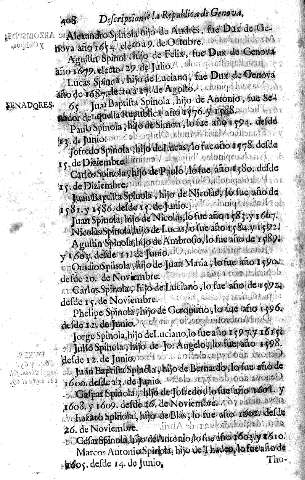 408 Descripcion de la Republica de Genova,
Alexandro Spinola hijo de Andres, fue Dux de Ge-
nova año 1654. electo a 9. de Octubre.
Agustin Spinol, hijo de Felix, fue Dux de Genova
año 1679. electo 29. de Julio.
Lucas Spinola, hijo de Luciano, fue Dux de Genova
año de 1687. electo a 17. de Agosto.
SENADORES. 65 Juan Baptista Spinola, hijo de Antonio, fue Se-
nador de aquella Republica año 1576. y 1588.
Paulo Spinola, hijo de Simon, lo fue año 1594. desde
13. de Junio.
Jofredo Spinola, hijo de Lucas, lo fue año 1578. desde
15. de Diziembre.
Carlos Spinola, hijo de Paulo, lo fue año 1580. desde
15. de Diziembre.
Juan Baptista Spinola, hijo de Nicolas, lo fue año de
1581. y 1586. desde 15. de Junio.
Juan Spinola, hijo de Nicolas, lo fue año 1583. y 1607.
Nicolas Spinola, hijo de Lucas, lo fue año 1584. y 1592.
Agustin Spinola, hijo de Ambrosio, lo fue año de 1589.
y 1603. desde 11. de Junio.
Oracio Spinola, hijo de Juan Maria, lo fue año 1590.
desde 20. de Noviembre.
Carlos Spinola, hijo de Luciano, lo fue año de 1592,
desde 15. de Noviembre.
Phelipe Spinola, hijo de Geronimo, lo fue año 1596.
desde 12. de Junio.
Jorge Spinola, hijo de Luciano, lo fue año 1597. y 1615.
Julio Spinola, hijo de Jo. Angelo, lo fue año 1598.
desde 12. de Junio.
Juan Baptista Spinola, hijo de Bernardo, lo fue año de
1600. desde 22. de Junio.
Gaspar Spinola, hijo de Jofredo, lo fue año 1601. y
1608. y 1609. desde 26. de Noviembre.
Spinola, hijo de Blas, lo fue año 1602. desde
26. de Noviembre.
Cesar Spinola, hijo de Antonio, lo fue año 1603. y 1610.
Marcos Antonio Spinola, hijo de Thadeo, lo fue año de
1605. desde 14. de Junio,
Tho-